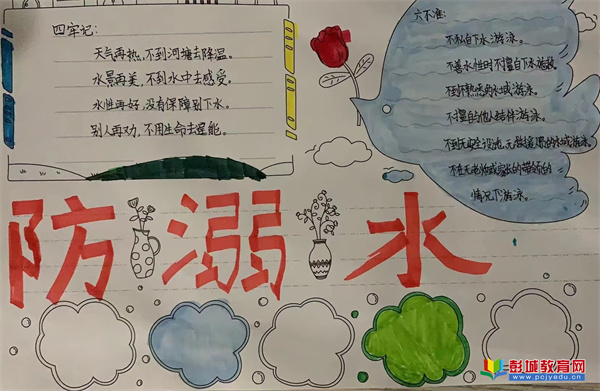 四牢记:
天气再热,不到河塘去降温。
水景再美,不到水中去感受。
水性再好,没有保障别下水。
别人再劝,不用生命去逞能。
六不准:
不私自下水游泳。
不善水性时不擅自下水施救
不到不熟悉的水域游泳。
不擅自与他人结伴游泳。
不到无安全设施,无救援人员的水域游泳。
不在无老师或家长带领的
情况下游泳。
防溺水
彭城教育网
www.pcjyedu.cn